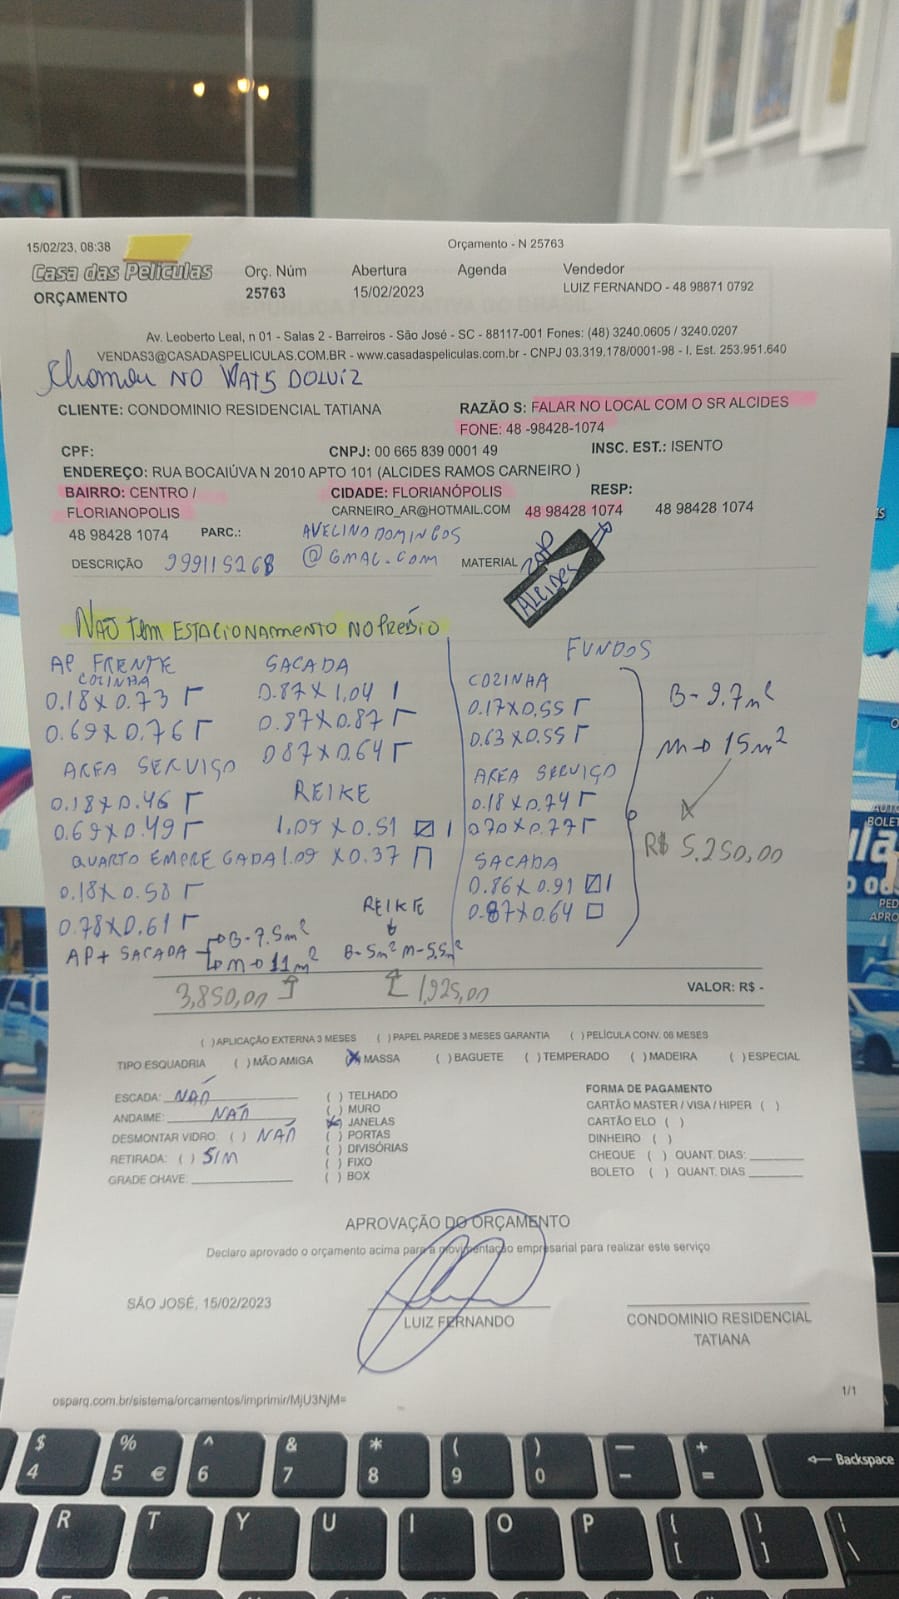 15/02/23, 08:38
Orçamento - N 25763
Casa das Películas
ORÇAMENTO
Orç. Núm
25763
Abertura
15/02/2023
Agenda
Vendedor
LUIZ FERNANDO - 48 98871 0792
Av. Leoberto Leal, n 01 - Salas 2 - Barreiros - São José - SC - 88117-001 Fones: (48) 3240.0605 / 3240.0207
VENDAS3@CASADASPELICULAS.COM.BR - www.casadaspeliculas.com.br - CNPJ 03.319.178/0001-98 - I. Est. 253.951.640
Chamou NO WATS DO LUIZ
CLIENTE: CONDOMINIO RESIDENCIAL TATIANA
RAZÃO S: FALAR NO LOCAL COM O SR ALCIDES
FONE: 48 -98428-1074
CPF:
CNPJ: 00 665 839 0001 49
INSC. EST.: ISENTO
ENDEREÇO: RUA BOCAIÚVA N 2010 APTO 101 (ALCIDES RAMOS CARNEIRO )
BAIRRO: CENTRO /
FLORIANOPOLIS
CIDADE: FLORIANÓPOLIS
RESP:
CARNEIRO_AR@HOTMAIL.COM
48 98428 1074
48 98428 1074
48 98428 1074
PARC.:
AVELINO DOMINGOS
@GMAL.COM
DESCRIÇÃO 999115268
MATERIAL
ZAP
ALCIDES
NÃO TEM ESTACIONAMENTO NO PRÉDIO
AP FRENTE
COZINHA
0.18 X 0.73
0.69 X 0.76
AREA SERVIÇO
0.18 X 0.46
0.69 X 0.49
QUARTO EMPREGADA
0.18 X 0.58
0.78 X 0.61
SACADA
0.87 X 1,04
0.87 X 0.87
0.87 X 0.64
REIKE
1.09 X 0.51
1.09 X 0.37
REIKE
AP + SACADA
B - 7.5m²
m → 11m²
B - 5m² m - 5,5m²
3,850,00
1,925,00
FUNDOS
COZINHA
0.17 X 0.55
0.63 X 0.55
AREA SERVIÇO
0.18 X 0.74
0.70 X 0.77
SACADA
0.86 X 0.91
0.87 X 0.64
B - 9.7m²
m → 15m²
R$ 5.250,00
VALOR: R$ -
( )APLICAÇÃO EXTERNA 3 MESES ( )PAPEL PAREDE 3 MESES GARANTIA ( )PELÍCULA CONV. 06 MESES
TIPO ESQUADRIA ( )MÃO AMIGA (X)MASSA ( )BAGUETE ( )TEMPERADO ( )MADEIRA ( )ESPECIAL
ESCADA: NÃO
ANDAIME: NÃO
DESMONTAR VIDRO: ( ) NÃO
RETIRADA: ( ) SIM
GRADE CHAVE:
( ) TELHADO
( ) MURO
(X) JANELAS
( ) PORTAS
( ) DIVISÓRIAS
( ) FIXO
( ) BOX
FORMA DE PAGAMENTO
CARTÃO MASTER / VISA / HIPER ( )
CARTÃO ELO ( )
DINHEIRO ( )
CHEQUE ( ) QUANT. DIAS:
BOLETO ( ) QUANT. DIAS
APROVAÇÃO DO ORÇAMENTO
Declaro aprovado o orçamento acima para a movimentação empresarial para realizar este serviço
SÃO JOSÉ, 15/02/2023
LUIZ FERNANDO
CONDOMINIO RESIDENCIAL
TATIANA
osparq.com.br/sistema/orcamentos/imprimir/MjU3NjM=
1/1
$ % ^ & * ( ) — +
4 5 € 6 7 8 9 0 - =
Backspace
R T Y U I O P { [ } ] | \